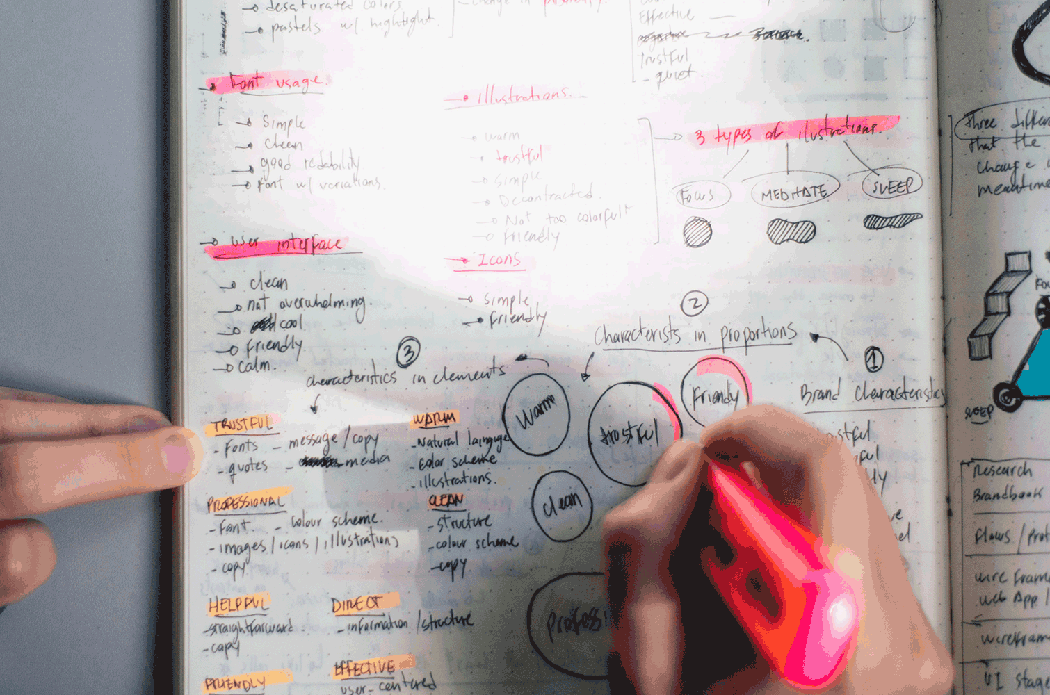 desaturated colors
pastels w/ highlight.
Effective
trustful
- quiet
Font usage.
Simple
Clean
good readability
Font w/ variations.
illustrations.
warm
trustful
Simple
Decontracted.
Not too colorful!
Friendly
3 types of ilustrations.
FOCUS
MEDITATE
SLEEP
User interface
clean
not overwhelming.
cool
Friendly
calm.
Icons
Simple
Friendly
3
characteristics in elements
2
Characterists in proportions
1
Brand Characteristics
Warm
trustful
Friendly
clean
TRUSTFUL
- Fonts - message / copy
- quotes - media
WARM
- Natural language
- Color scheme
- illustrations.
PROFESSIONAL
- Font - colour scheme.
- images / icons / illustrations
- copy
CLEAN
- structure
- colour scheme
- copy
HELPFUL
- straightforward
- copy
DIRECT
- information / structure
FRIENDLY
EFFECTIVE
user-centered
Three
that the
change
meantime
SLEEP
Research
Brandbook
Flows /
wire frame
web App /
wireframe
UI stage